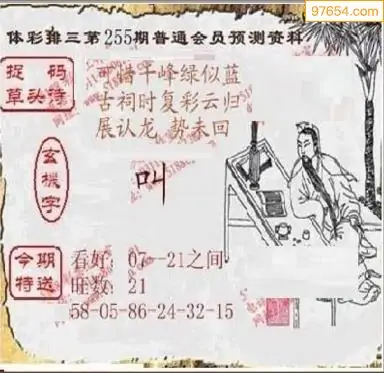 97654.com
体彩排三第255期普通会员预测资料
捉码
草头诗
千峰绿似蓝
古祠时复彩云归
展认龙 势未回
玄機字
叫
今期
特送
看好: 07--21之间
旺数: 21
58-05-86-24-32-15